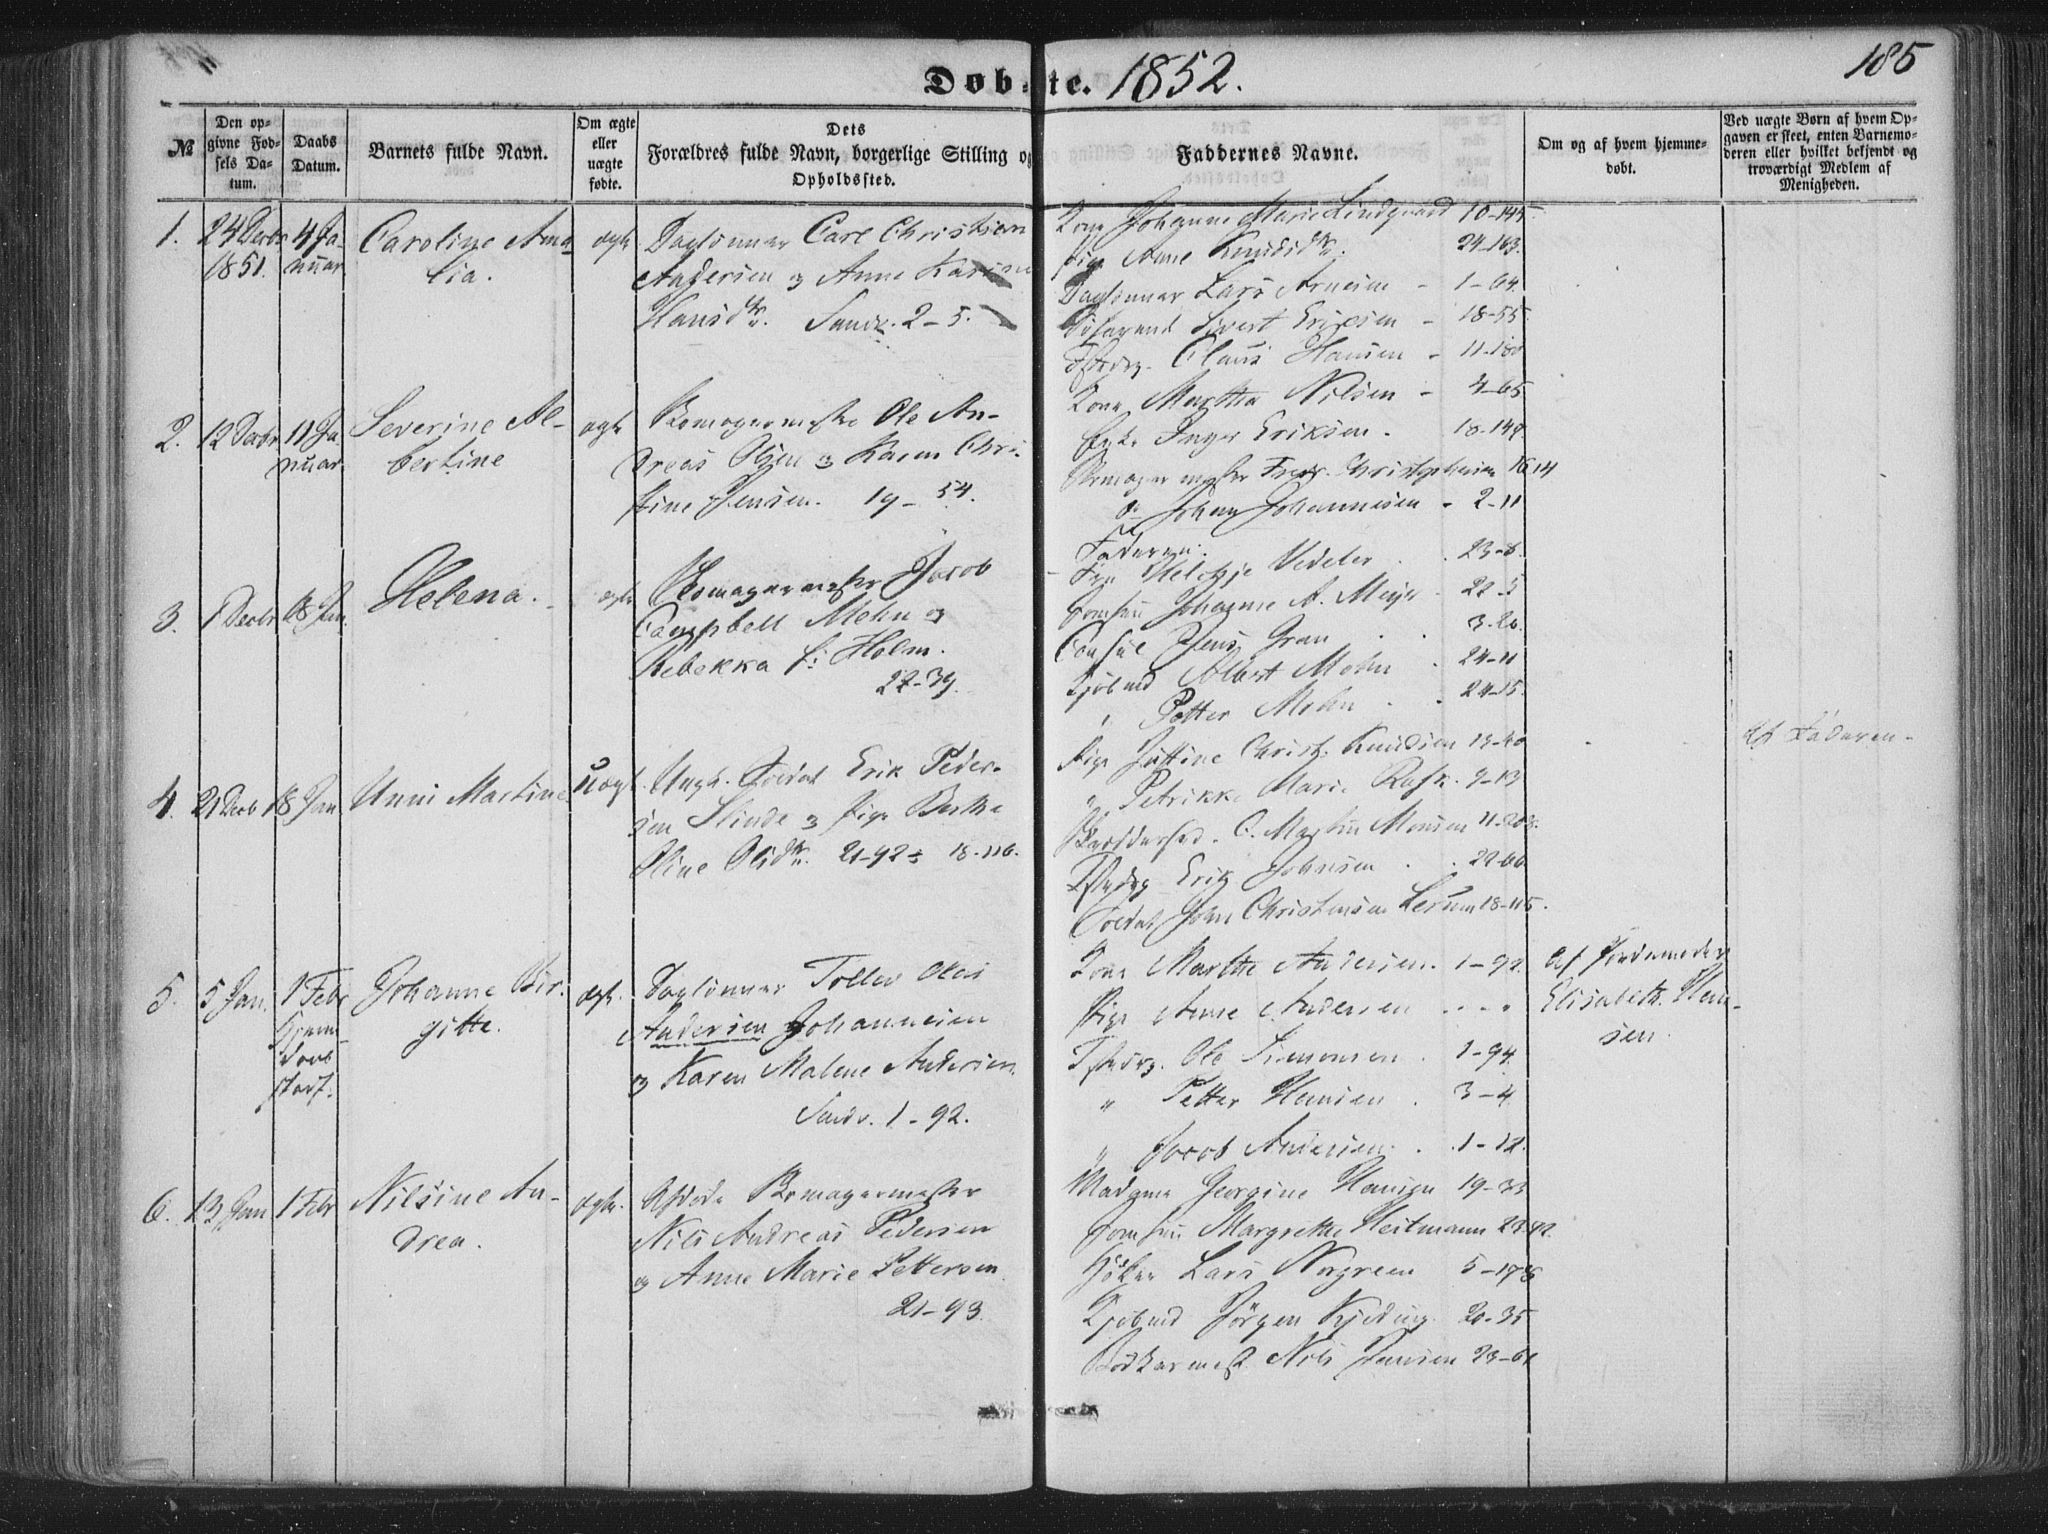 Døbte. 1852.
185
№
Den opgivne Fødsels Datum.
Daabs Datum.
Barnets fulde Navn.
Om ægte eller uægte fødte.
Dets Forældres fulde Navn, borgerlige Stilling og Opholdssted.
Faddernes Navne.
Om og af hvem hjemmedøbt.
Ved uægte Børn af hvem Opgaven er skeet, enten Barnemoderen eller hvilket bekjendt og troværdigt Medlem af Menigheden.
1. 24 Decbr 1851. 4 Januar
Caroline Amalia.
ægte
Daglønner Carl Christian
Andersen og Anne Karine
Hansdtr. Sandv. 2-5.
Kone Johanne Marie Lindgaard 10-145.
Pige Anne Knudsdtr. 24-163.
Daglønner Lars Arnesen - 1-64.
Sivert Eriksen - 18-55.
Claus Hansen - 11-180
2. 12 Decbr 11 Januar
Severine Albertine
ægte
Skomagermester Ole Andreas
Olsen og Karen Christine
Jensen. 19-54.
Kone Martha Nilsen - 4-65
Enke Inger Eriksen - 18-149.
Skomagermester Fredr. Christophersen 16-14
Do Johan Johannesen - 2-11
Faderen.
3. 1 Decbr 18 Jan.
Helena.
ægte
Skomagermester Jacob
Campbell Mohn og
Rebekka f: Holm.
22-39.
Fru Weltzje Vedeler . 23-8.
Jomfru Johanne A. Meyer . 22-5
Consul Jens Gran . 3-20.
Kjøbmd Albert Mohn . 24-11
" Petter Mohn . 24-15.
4. 21 Decb 18 Jan
Unni Martine
uægt.
Ungk. Soldat Erik Pedersen
Slinde og Pige Berthe
Oline Olsdtr. 21-92 & 18-116.
Pige Justine Christ. Knudsen 13-40
" Petrikke Marie Rask. 9-13
Skræddersvd. C. Martin Monsen 11-208.
Erik Johnsen . . 22-66
Soldat John Christensen Lerum 18-115.
af Faderen.
5. 5 Jan. 1 Febr
Hjemmedøbt strax.
Johanne Birgitte.
ægte.
Daglønner Tollev Olai
Andersen Johannesen
og Karen Malene Andersen
Sandv. 1-92.
Kone Marthe Andersen. 1-92.
Pige Anne Andersen . . . .
Ole Simonsen . 1-94.
" Petter Hansen . 3-4.
" Jacob Andersen . 1-12.
af Jordemoder
Elisabeth Hansen
6. 13 Jan 1 Febr
Nilsine Andrea.
ægte.
Afdøde Skomagermester
Nils Andreas Pedersen
og Anne Marie Pettersen
21-93.
Madame Georgine Hansen 19-33
Jomfru Margrethe Heitmann 22-92.
Høker Lars Norgreen 5-178
Kjøbmd Jörgen Kjeding 20-35
Bødkermest. Nils Jansen 23-61